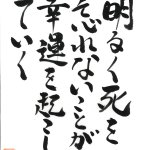 明るく死を
恐れないことが
幸運を起こし
ていく